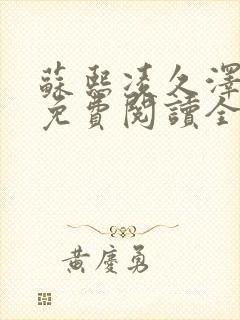 蘇熙凌久澤
免費閱讀全
黃慶勇